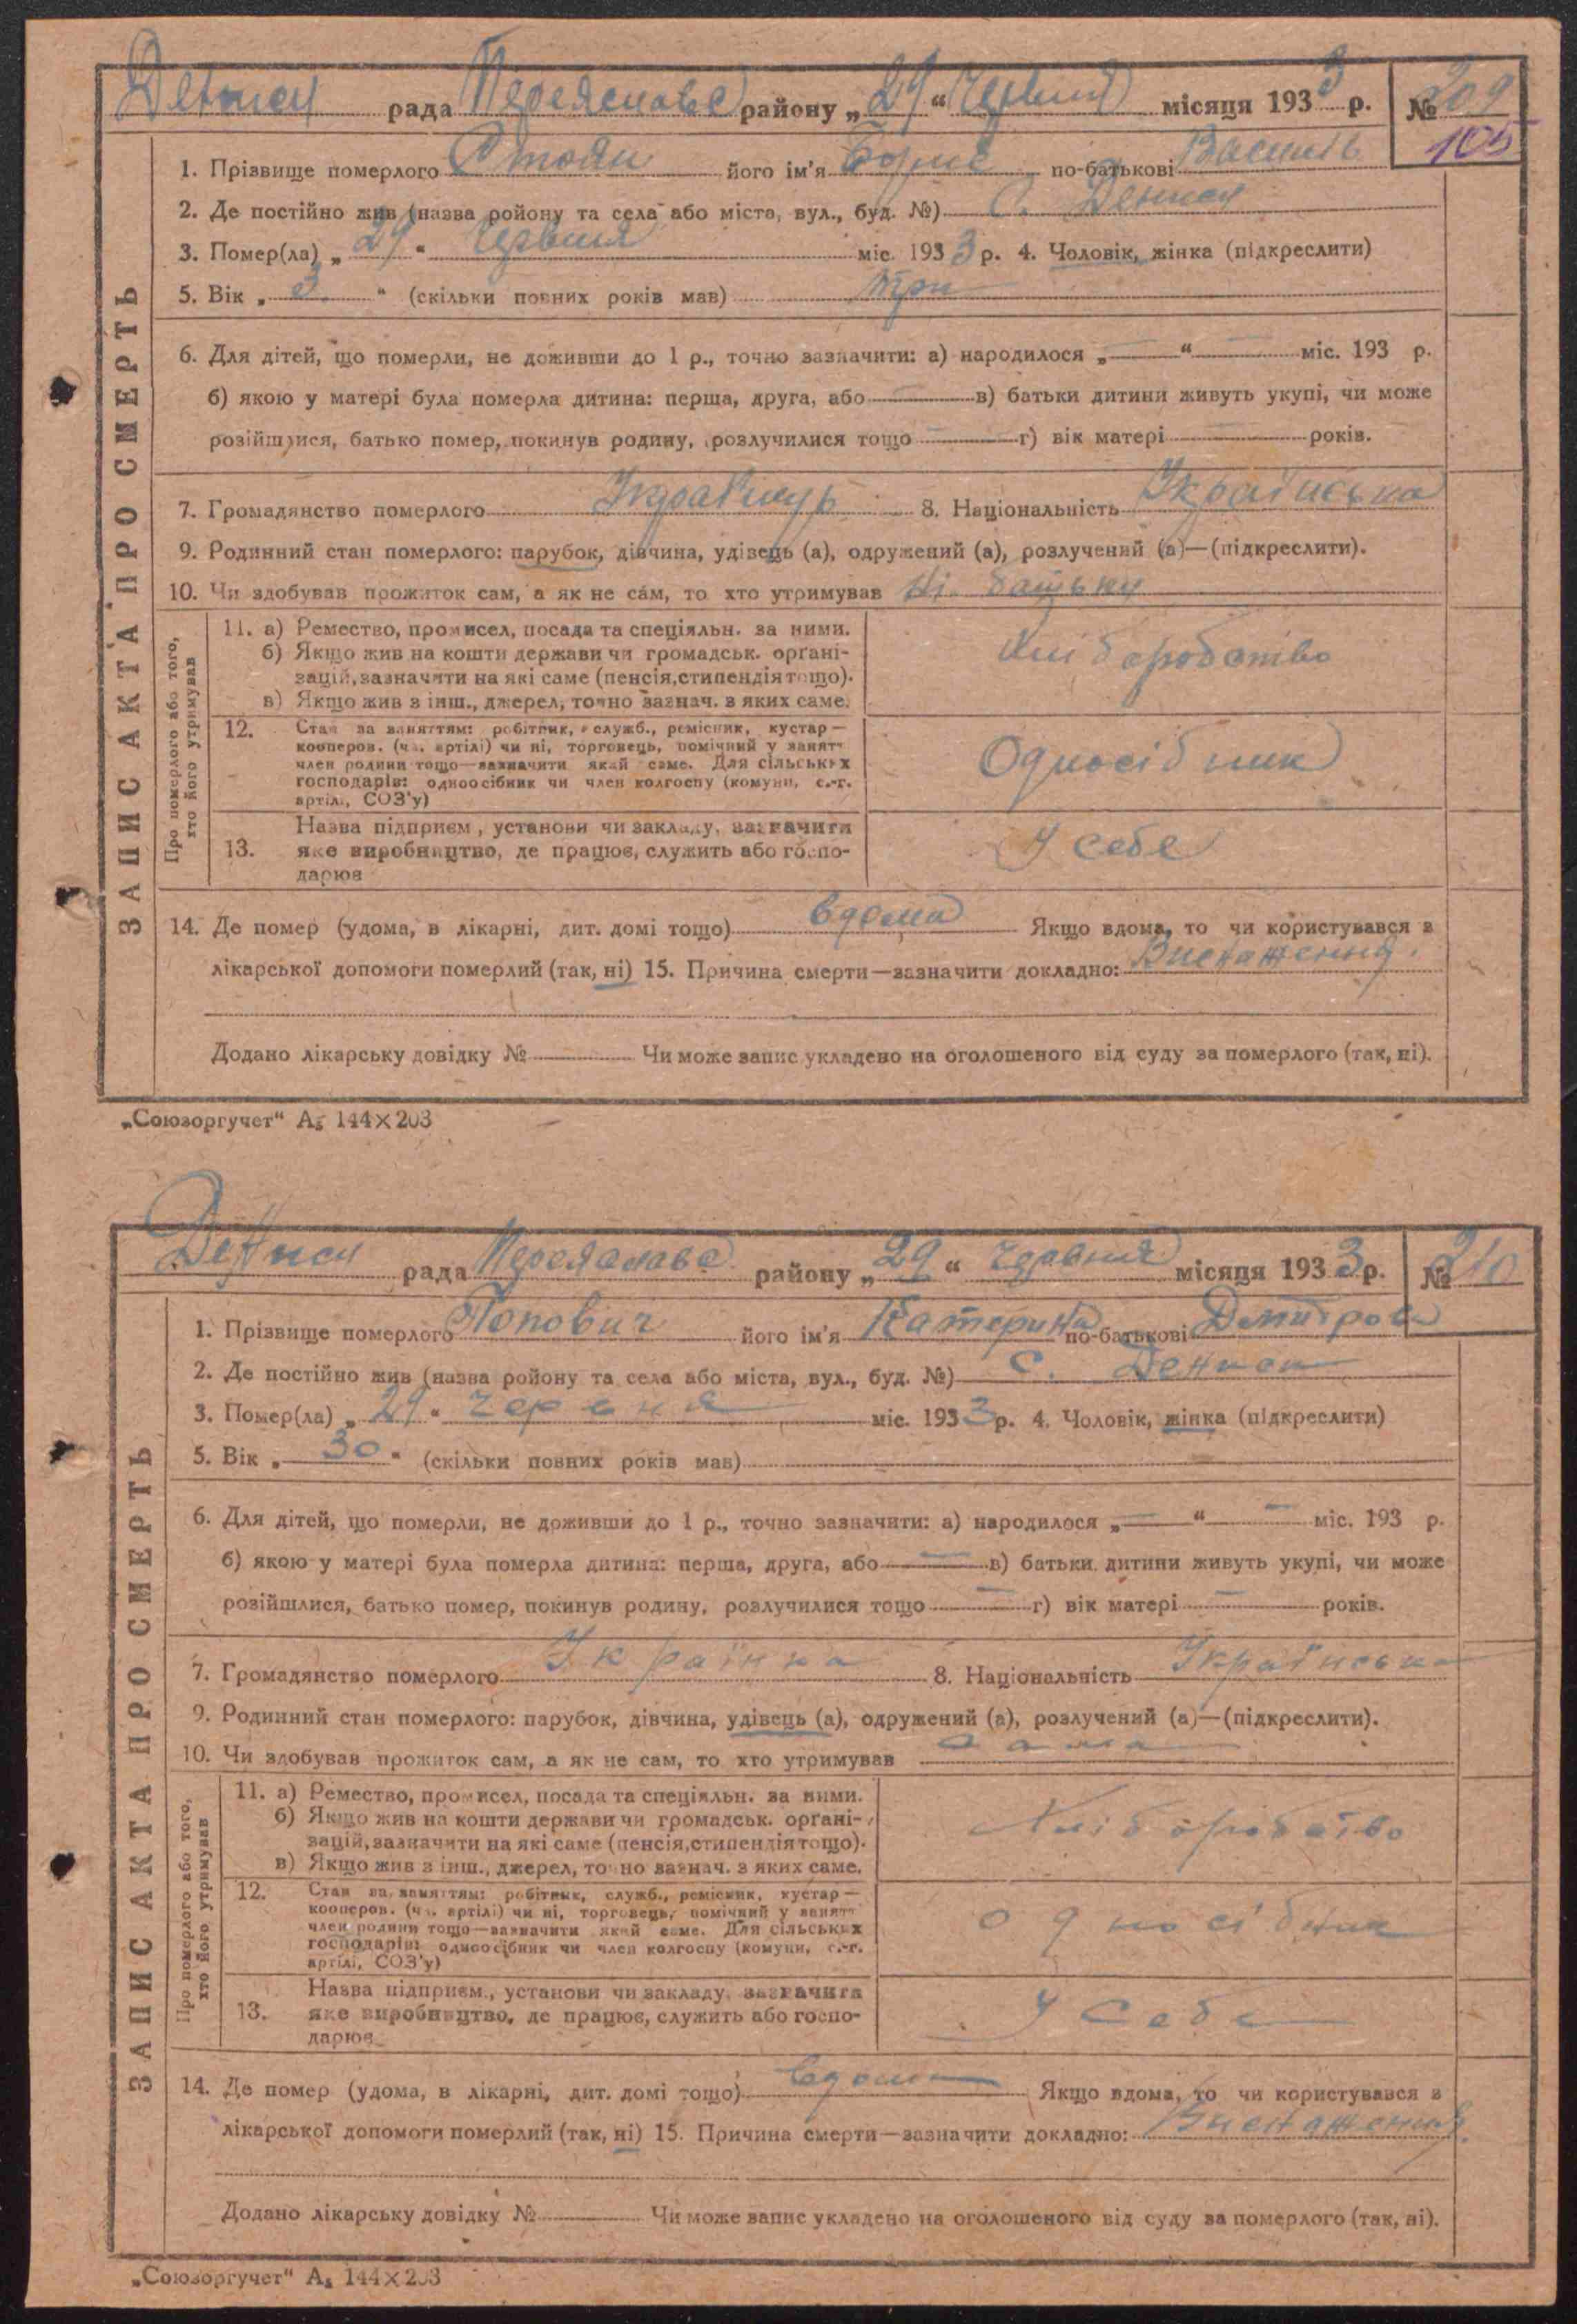 Дениси рада Переяславс району „29“ Червня місяця 1933 р. № 209
105
ЗАПИС АКТА ПРО СМЕРТЬ
1. Прізвище померлого Стоян його ім'я Борис по-батькові Василь
2. Де постійно жив (назва ройону та села або міста, вул., буд. №) С. Дениси
3. Помер(ла) „29“ Червня міс. 1933 р. 4. Чоловік, жінка (підкреслити)
5. Вік „3“ (скільки повних років мав) три
6. Для дітей, що померли, не доживши до 1 р., точно зазначити: а) народилося „—“ — міс. 193 р.
б) якою у матері була померла дитина: перша, друга, або — в) батьки дитини живуть укупі, чи може
розійшлися, батько помер, покинув родину, розлучилися тощо — г) вік матері — років.
7. Громадянство померлого 8. Національність Українська
9. Родинний стан померлого: парубок, дівчина, удівець (а), одружений (а), розлучений (а)—(підкреслити).
10. Чи здобував прожиток сам, а як не сам, то хто утримував Ні. батьки
Про померлого або того,
хто його утримував
11. а) Ремество, промисел, посада та спеціяльн. за ними.
б) Якщо жив на кошти держави чи громадськ. органі-
зацій, зазначити на які саме (пенсія, стипендія тощо).
в) Якщо жив з інш., джерел, точно зазнач. з яких саме.
Хліборобство
12. Стан за заняттям: робітник, служб., ремісник, кустар—
кооперов. (чл. артілі) чи ні, торговець, помічний у занятт
член родини тощо—зазначити який саме. Для сільських
господарів: одноосібник чи член колгоспу (комуни, с.-г.
артілі, СОЗ'у)
Односібник
13. Назва підприєм., установи чи закладу, зазначити
яке виробництво, де працює, служить або госпо-
дарює
У себе
14. Де помер (удома, в лікарні, дит. домі тощо) вдома Якщо вдома, то чи користувався з
лікарської допомоги померлий (так, ні) 15. Причина смерти—зазначити докладно: Виснаження.
Додано лікарську довідку № — Чи може запис укладено на оголошеного від суду за померлого (так, ні).
„Союзоргучет“ А₅ 144×203
Дениси рада Переяславс району „29“ Червня місяця 1933 р. № 210
ЗАПИС АКТА ПРО СМЕРТЬ
1. Прізвище померлого Попович його ім'я Катерина по-батькові Дмитрова
2. Де постійно жив (назва ройону та села або міста, вул., буд. №) С. Дениси
3. Помер(ла) „29“ Червня міс. 1933 р. 4. Чоловік, жінка (підкреслити)
5. Вік „30“ (скільки повних років мав)
6. Для дітей, що померли, не доживши до 1 р., точно зазначити: а) народилося „—“ — міс. 193 р.
б) якою у матері була померла дитина: перша, друга, або — в) батьки дитини живуть укупі, чи може
розійшлися, батько помер, покинув родину, розлучилися тощо — г) вік матері — років.
7. Громадянство померлого Українка 8. Національність Українська
9. Родинний стан померлого: парубок, дівчина, удівець (а), одружений (а), розлучений (а)—(підкреслити).
10. Чи здобував прожиток сам, а як не сам, то хто утримував сама
Про померлого або того,
хто його утримував
11. а) Ремество, промисел, посада та спеціяльн. за ними.
б) Якщо жив на кошти держави чи громадськ. органі-
зацій, зазначити на які саме (пенсія, стипендія тощо).
в) Якщо жив з інш., джерел, точно зазнач. з яких саме.
Хліборобство
12. Стан за заняттям: робітник, служб., ремісник, кустар—
кооперов. (чл. артілі) чи ні, торговець, помічний у занятт
член родини тощо—зазначити який саме. Для сільських
господарів: одноосібник чи член колгоспу (комуни, с.-г.
артілі, СОЗ'у)
односібник
13. Назва підприєм., установи чи закладу, зазначити
яке виробництво, де працює, служить або госпо-
дарює
У себе
14. Де помер (удома, в лікарні, дит. домі тощо) вдома Якщо вдома, то чи користувався з
лікарської допомоги померлий (так, ні) 15. Причина смерти—зазначити докладно: Виснаження.
Додано лікарську довідку № Чи може запис укладено на оголошеного від суду за померлого (так, ні).
„Союзоргучет“ А₅ 144×203